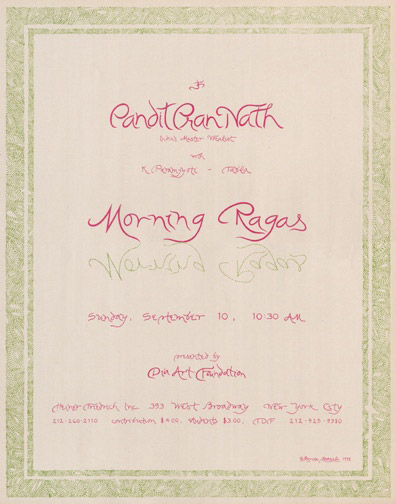 ॐ
Pandit Pran Nath
India's Master Vocalist
with
K. Paramjyoti - Tabla
Morning Ragas
Sunday, September 10, 10:30 AM
presented by
Dia Art Foundation
Heiner Friedrich Inc 393 West Broadway New York City
212-260-2110 contribution $4.00, students $3.00, TDF 212-925-9380